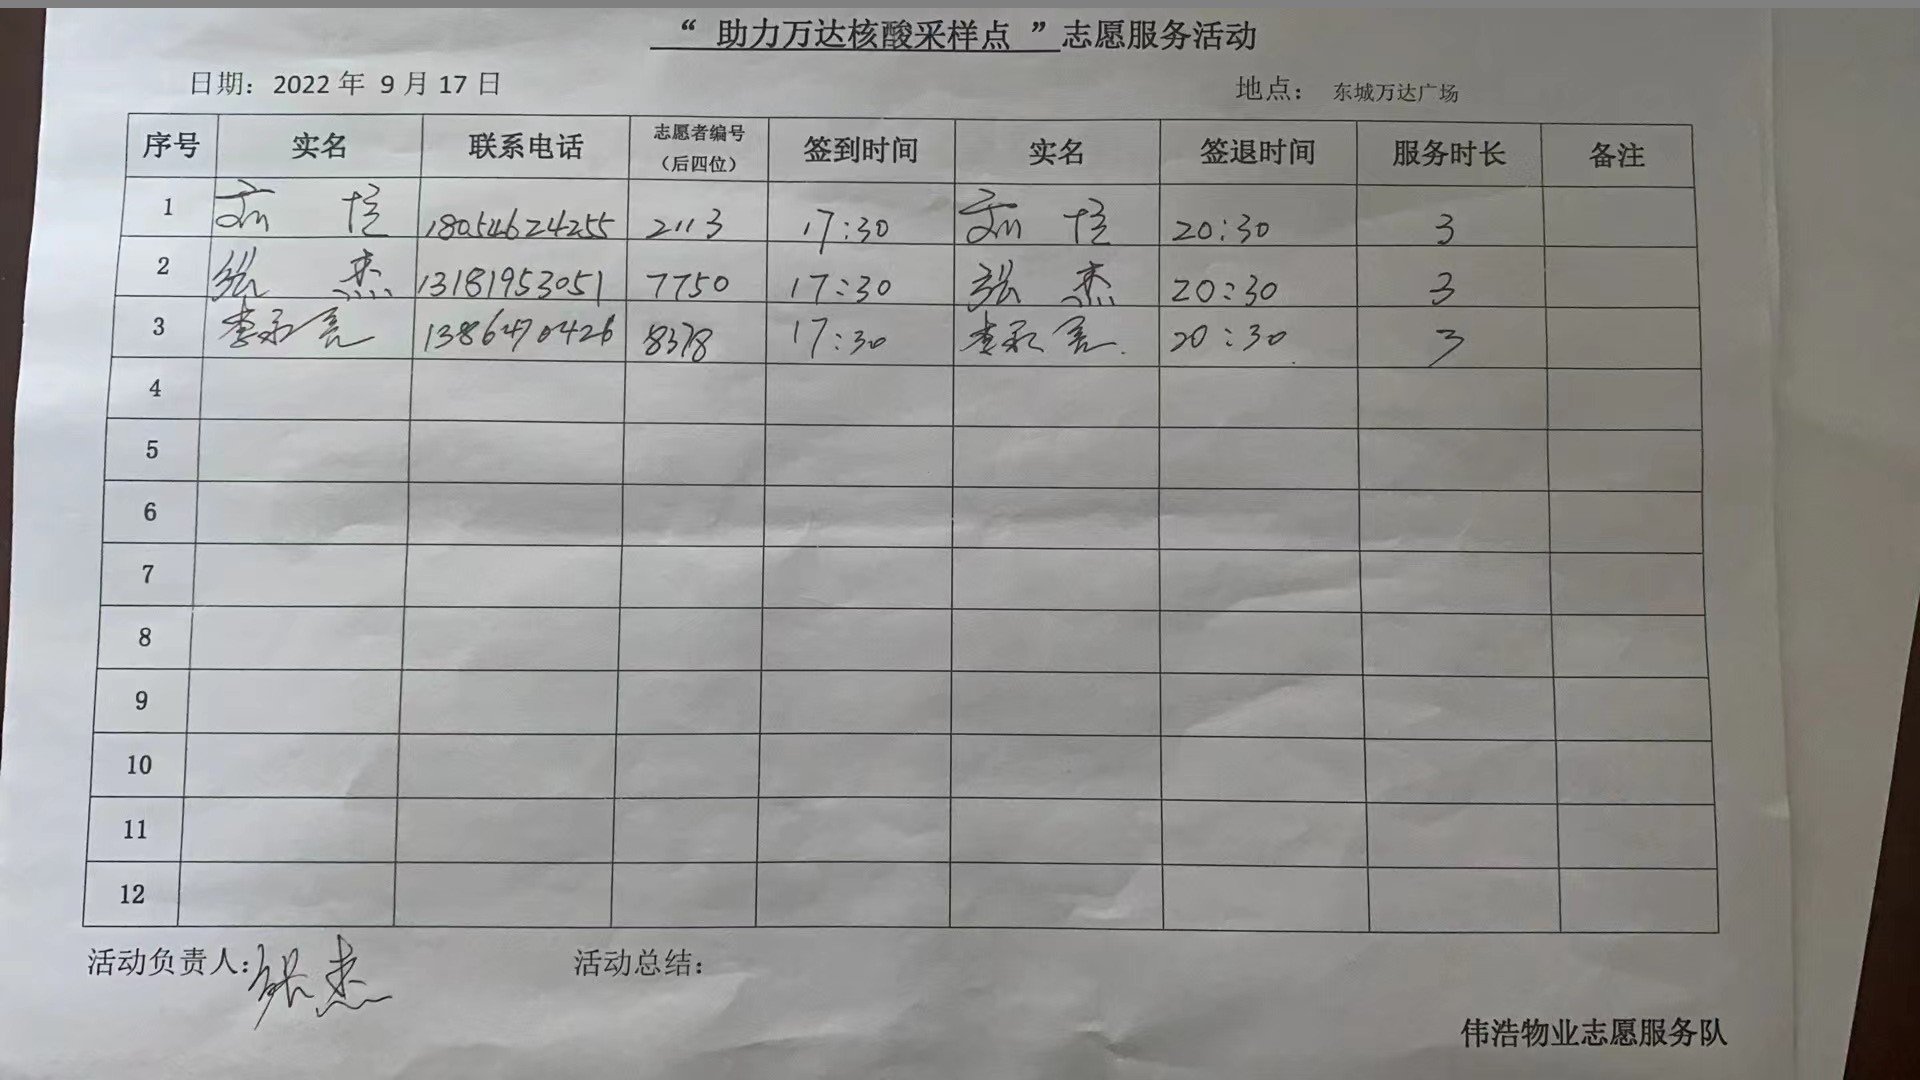 “ 助力万达核酸采样点 ”志愿服务活动
日期：2022 年 9 月 17 日 地点： 东城万达广场
序号 实名 联系电话 志愿者编号（后四位） 签到时间 实名 签退时间 服务时长 备注
1 18054624255 2113 17:30 20:30 3
2 张杰 13181953051 7750 17:30 张杰 20:30 3
3 李 8378 17:30 李 20:30 3
4
5
6
7
8
9
10
11
12
活动负责人：张杰 活动总结：
伟浩物业志愿服务队